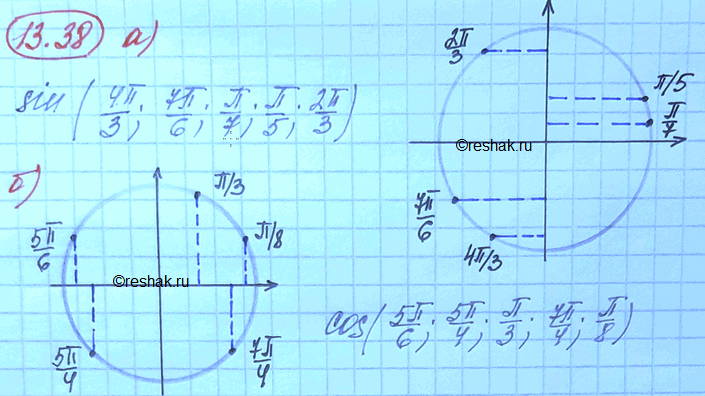 13.38) а)
sin ( 4π/3; 7π/6; π/7; π/5; 2π/3 )
2π/3
π/5
π/7
©reshak.ru
7π/6
4π/3
б)
π/3
5π/6
π/8
©reshak.ru
5π/4
7π/4
cos( 5π/6; 5π/4; π/3; 7π/4; π/8 )